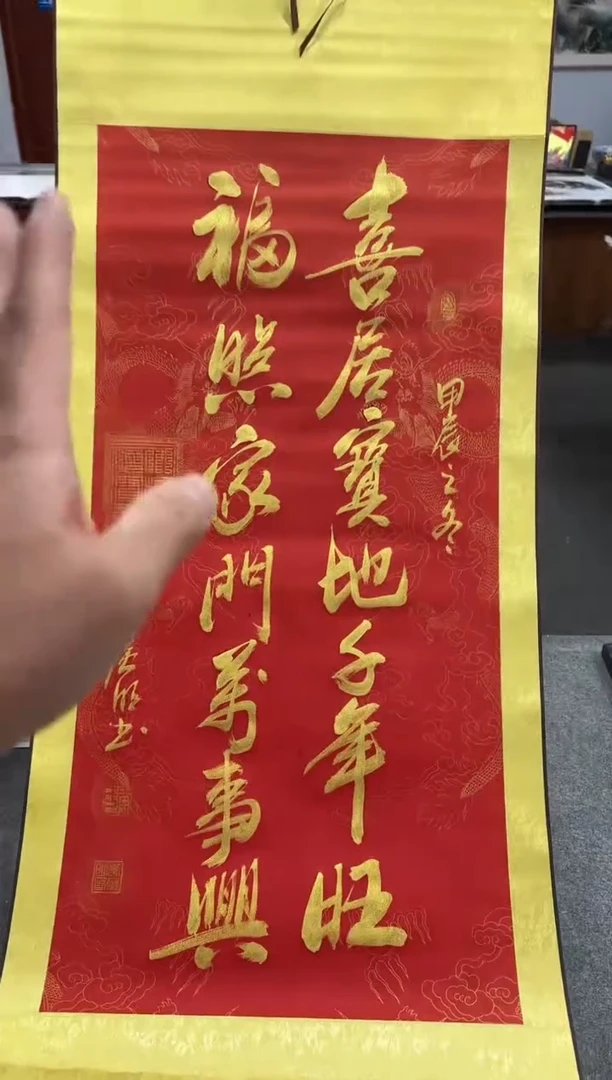 甲辰之冬
喜居寶地千年旺
福照家門萬事興
書